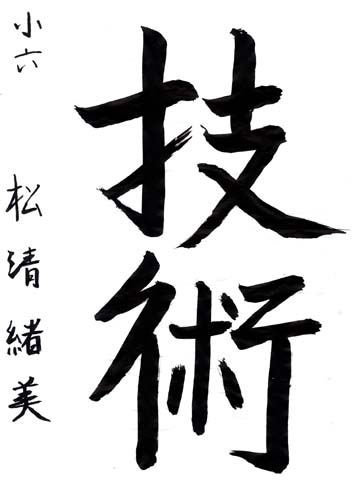 技術
小六 松清緒美